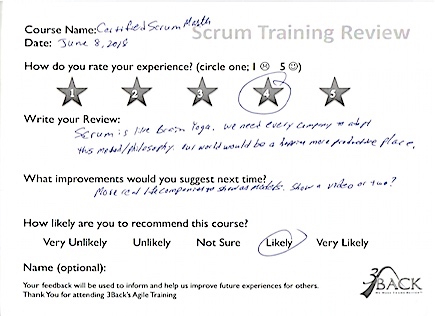 Course Name: Certified Scrum Master
Scrum Training Review
Date: June 8, 2018
How do you rate your experience? (circle one; 1 ☹ 5 ☺)
1 2 3 4 5
Write your Review:
Scrum is like Brain Yoga. We need every company to adopt
this method/philosophy. Our world would be a happier more productive place.
What improvements would you suggest next time?
More real life companies to show as models. Show a video or two?
How likely are you to recommend this course?
Very Unlikely Unlikely Not Sure Likely Very Likely
Name (optional):
Your feedback will be used to inform and help us improve future experiences for others.
Thank You for attending 3Back's Agile Training
3BACK